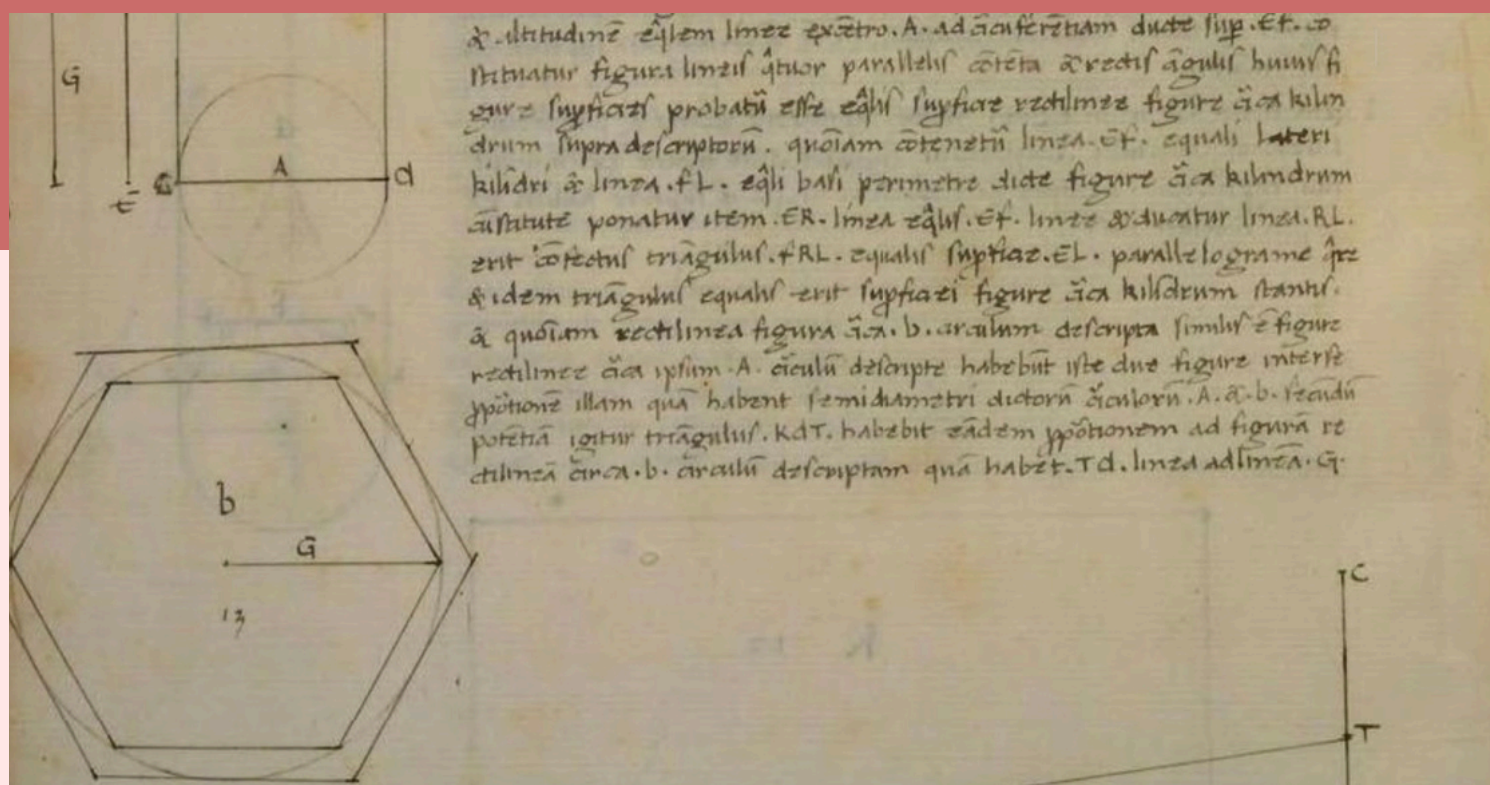 & altitudinē eq̃lem linee excētro. A. ad c̃icūferētiam ducte sup̱. Ef. co
stituatur figura lineis q̃tuor parallelis cōtēta & rectis āgulis huius fi
gure sup̱ficies probatũ esse eq̃lis sup̱ficie rectilinee figure c̃ica kilin
drum supra descriptorũ. quōiam cōtenetũ linea. Ef. equali lateri
kilīdri & linea. fL. eq̃li basi perimetre dicte figure c̃ica kilindrum
cūstitute ponatur item. ER. linea eq̃lis. Ef. linee & ducatur linea. RL.
erit cōfectus triāgulus. fRL. equalis sup̱ficie. EL. parallelograme q̃re
& idem triāgulus equalis erit sup̱ficiei figure c̃ica kilīdrum stantis.
& quōiam rectilinea figura c̃ica. b. circulum descripta similis ē figure
rectilinee c̃ica ipsum. A. c̃iculũ descripte habebūt iste due figure interse
ꝓpōtionē illam quā habent semidiametri dictorũ c̃iculorũ. A. &. b. secūdũ
potētiā igitur triāgulus. KdT. habebit eādem ꝓpōtionem ad figurā re
ctilineā circa. b. circulũ descriptam quā habēt. Td. linea ad lineā. G.
G
t
A
d
b
G
13
C
T